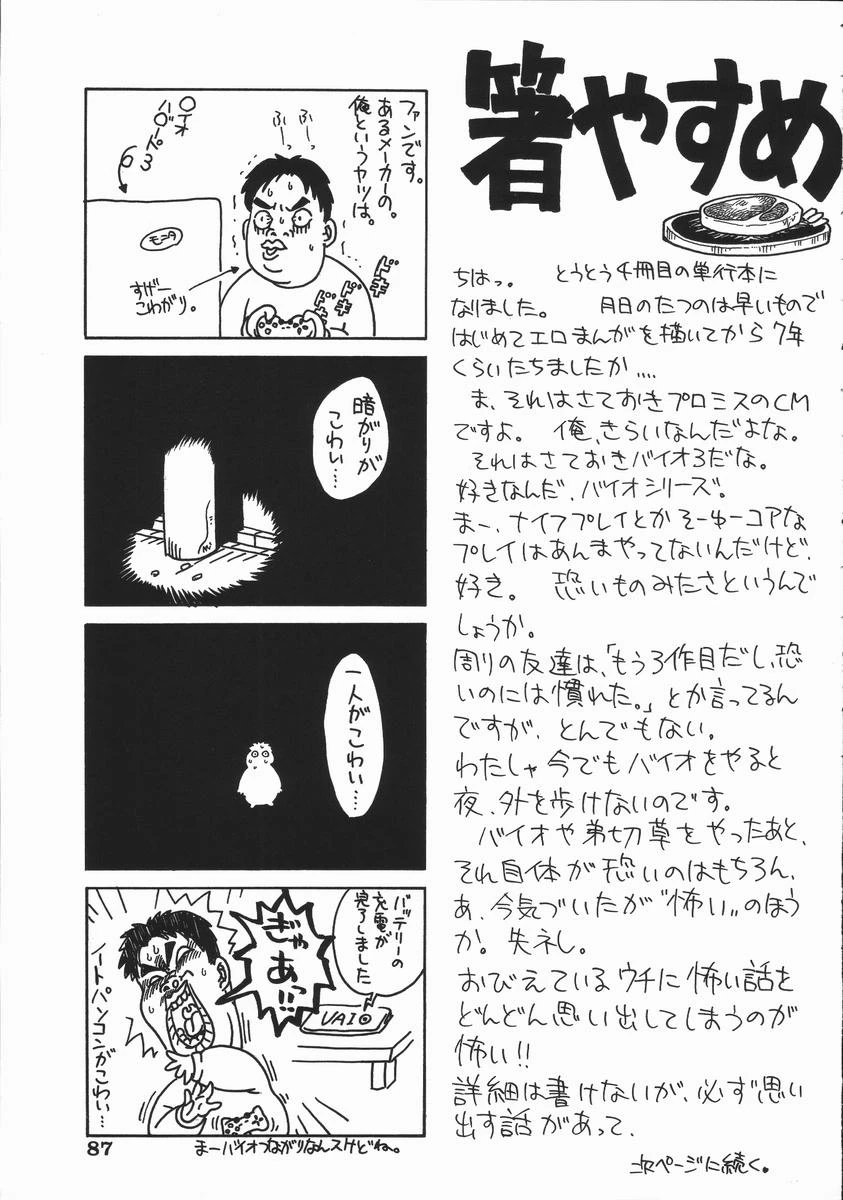 箸やすめ
ちはっ。 とうとう4冊目の単行本に
なりました。 月日のたつのは早いもので
はじめてエロまんがを描いてから7年
くらいたちましたか‥‥
ま、それはさておきプロミスのCM
ですよ。 俺、きらいなんだよな。
それはさておきバイオ3だな。
好きなんだ、バイオシリーズ。
まー、ナイフプレイとかそーゆーコアな
プレイはあんまやってないんだけど、
好き。 恐いものみたさというんで
しょうか。
周りの友達は、「もう3作目だし、恐
いのには慣れた。」とか言ってるん
ですが、とんでもない。
わたしゃ今でもバイオをやると
夜、外を歩けないのです。
バイオや弟切草をやったあと、
それ自体が恐いのはもちろん、
あ、今気づいたが“怖い”のほう
か。失ネし。
おびえているウチに怖い話を
どんどん思い出してしまうのが
怖い!!
詳細は書けないが、必ず思い
出す話があって、
次ページに続く。
俺というヤツは。
あるメーカーの。
ファンです。
ふーっ
ふーっ
〇イオ
ハザード3
モニタ
すげー
こわがり。
ドキ
ドキ
ドキ
暗がりが
こわい…
一人が
こわい…
バッテリーの
充電が
完了しました
ぎゃあっ!!
VAIO
ノートパソコンがこわい…
まーバイオつながりなんスけどね。
87